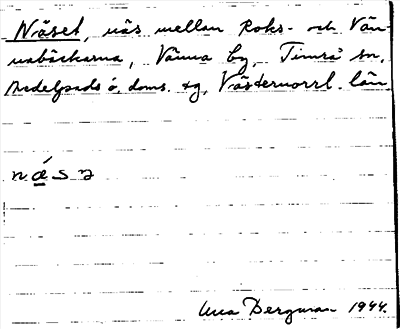 Näset, näs mellan Roks- och Vän-
nabäckarna, Vänna by, Timrå sn,
Medelpads ö. doms. tg, Västernorrl. län.
Bergman 1944.